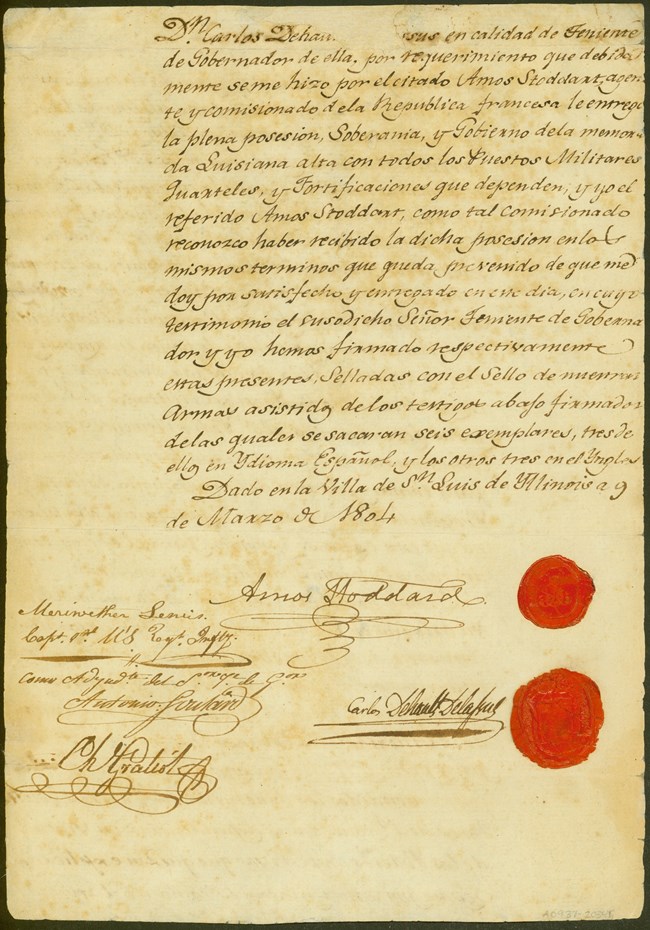 Dn. Carlos Dehau sus en calidad de Teniente
de Gobernador de ella, por requerimiento que debida
mente se me hizo por el citado Amos Stoddart, agen
te y comisionado de la Republica francesa le entrego
la plena posesion, Soberania, y Gobierno de la
da Luisiana alta con todos los Puestos Militares
Quarteles, y Fortificaciones que dependen, y yo el
referido Amos Stoddart, como tal comisionado
reconozco haber recibido la dicha posesion en los
mismos terminos que queda prevenido de que me
doy por satisfecho y entregado en este dia, en cuyo
testimonio el susodicho Señor Teniente de Goberna
dor y yo hemos firmado respectivamente
estas presentes, Selladas con el Sello de nuestras
Armas asistidos de los testigos abajo firmados
de las quales se sacaran seis exemplares, tres de
ellos en Ydioma Español, y los otros tres en el Yngles
Dado en la Villa de Sn. Luis de Yllinois a 9
de Marzo de 1804
Amos Stoddard.
Meriwether Lewis.
Capt. 1st. U'S. Regt. Infty.
como Adyudte. del
Antonio Soulard
Carlos Dehault Delassus
Ch Gratiot